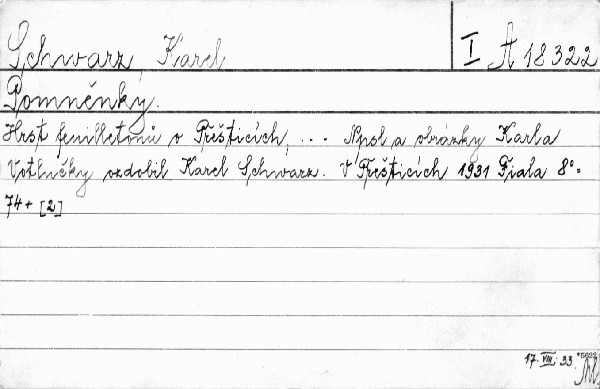 Schwarz, Karel I A 18322
Pomněnky.
Hrst feuilletonů o Přešticích, ... Npsl a obrázky Karla
Votlučky ozdobil Karel Schwarz. V Přešticích 1931 Fiala 8°.
74 + [2]
17. VIII. 33. °5622